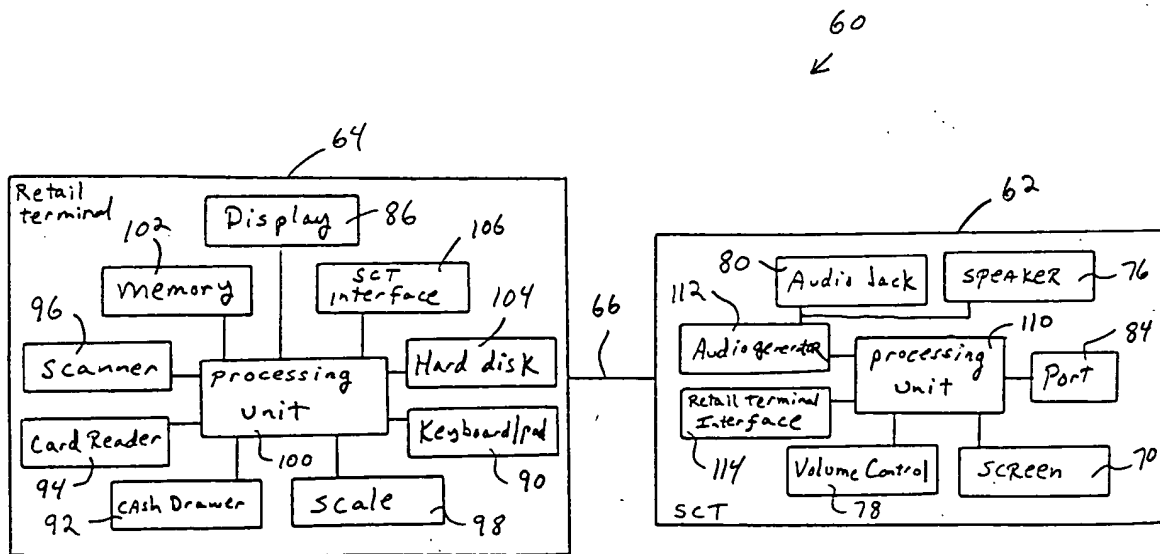 60
64
Retail
terminal
Display
86
102
memory
106
SCT
interface
104
Hard disk
96
Scanner
processing
unit
100
Card Reader
94
Keyboard/pad
90
CAsh Drawer
92
Scale
98
66
62
80
Audio Jack
SPEAKER
76
112
Audio generator
110
processing
unit
84
Port
Retail Terminal
Interface
114
Volume Control
78
SCReen
70
SCT